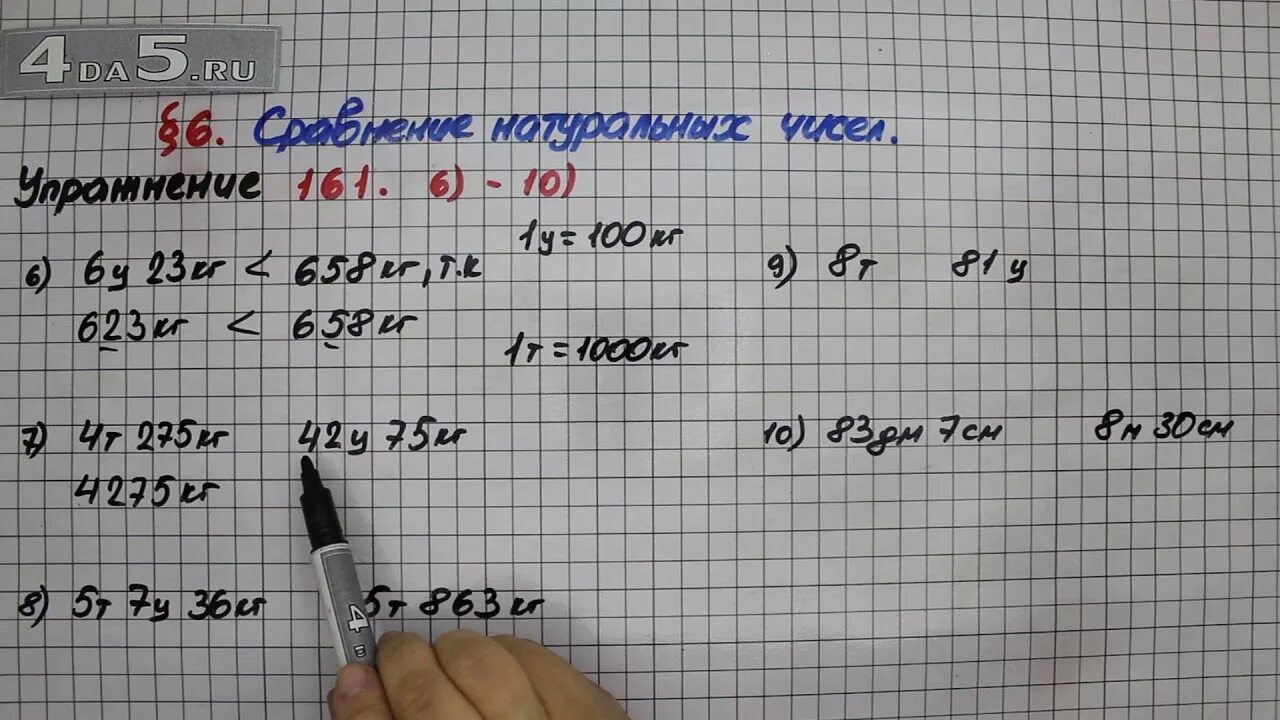 4DA5.RU
§6. Сравнение натуральных чисел.
Упражнение 161. 6) - 10)
1ц = 100кг
6) 6ц 23кг < 658кг, т.к
623кг < 658кг
1т = 1000кг
7) 4т 275кг 42ц 75кг
4275кг
8) 5т 7ц 36кг 5т 863кг
9) 8т 81ц
10) 83дм 7см 8м 30см
4
D